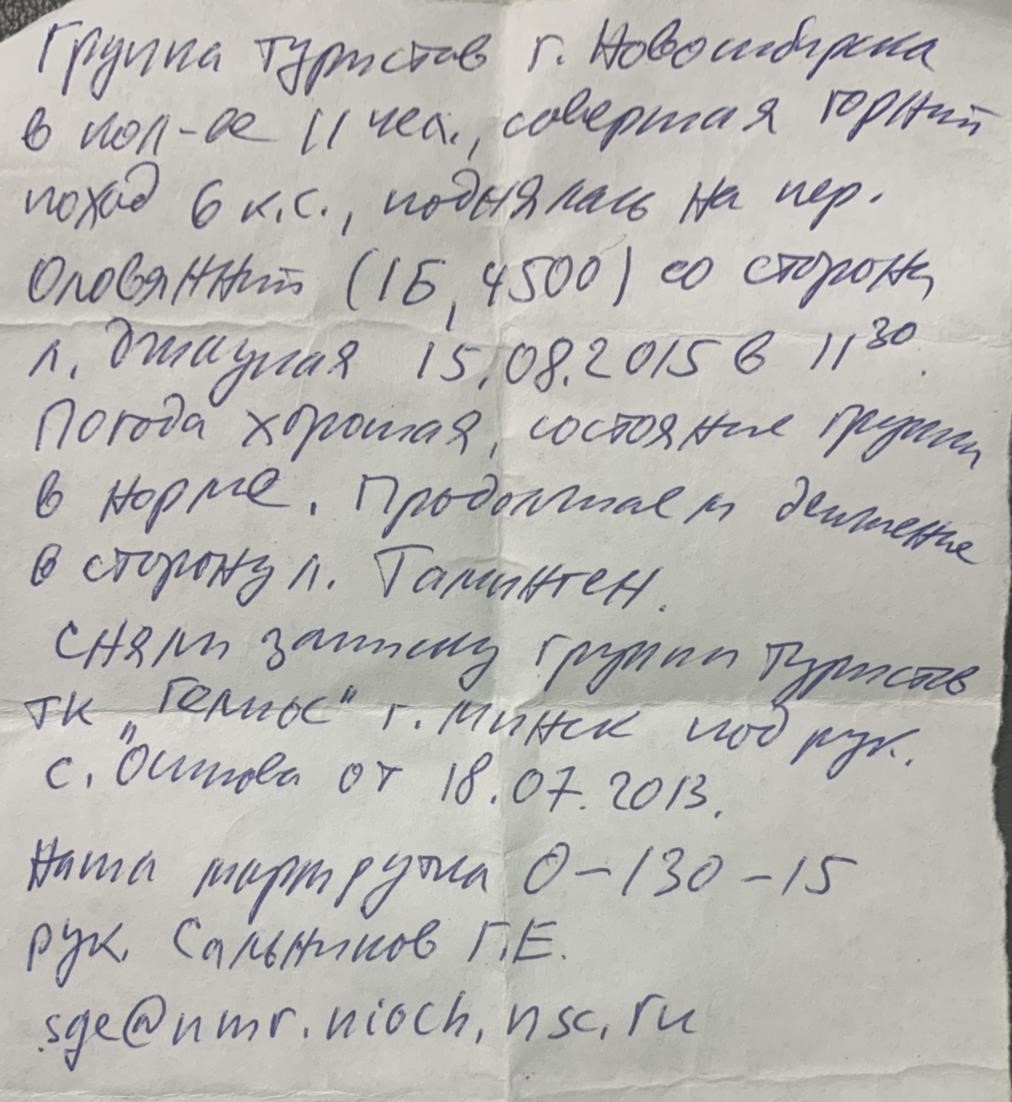 Группа туристов г. Новосибирска
в кол-ве 11 чел., совершая горный
поход 6 к.с., поднялась на пер.
Оловянный (1Б, 4500) со стороны
л. Джаупая 15.08.2015 в 11 30.
Погода хорошая, состояние группы
в норме. Продолжаем движение
в сторону л. Тамынген.
Сняли записку группы туристов
ТК „Гелиос" г. Минск под рук.
С. Осипова от 18.07.2013.
Наша маршрутка 0-130-15
рук. Сальников Г.Е.
sge@nmr.nioch.nsc.ru